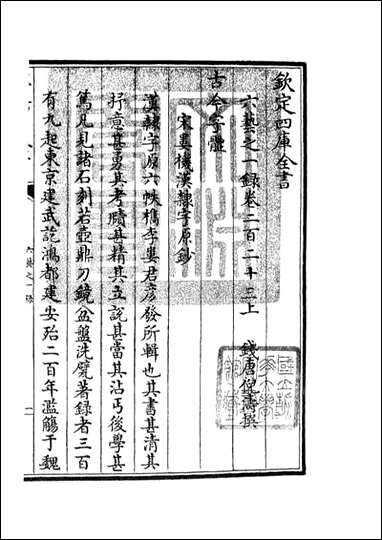 欽定四庫全書
六藝之一録卷二百二十三上
錢唐倪濤撰
古今字體
宋婁機漢隸字原鈔
漢隸字原六帙檇李婁君彥發所輯也其書甚清其
抒意甚勇其考賾甚精其立説甚當其沾丐後學甚
篤凡見諸石刻若壺鼎刀鏡盆盤洗甓著録者三百
有九起東京建武訖鴻都建安殆二百年濫觴于魏
六藝之一録